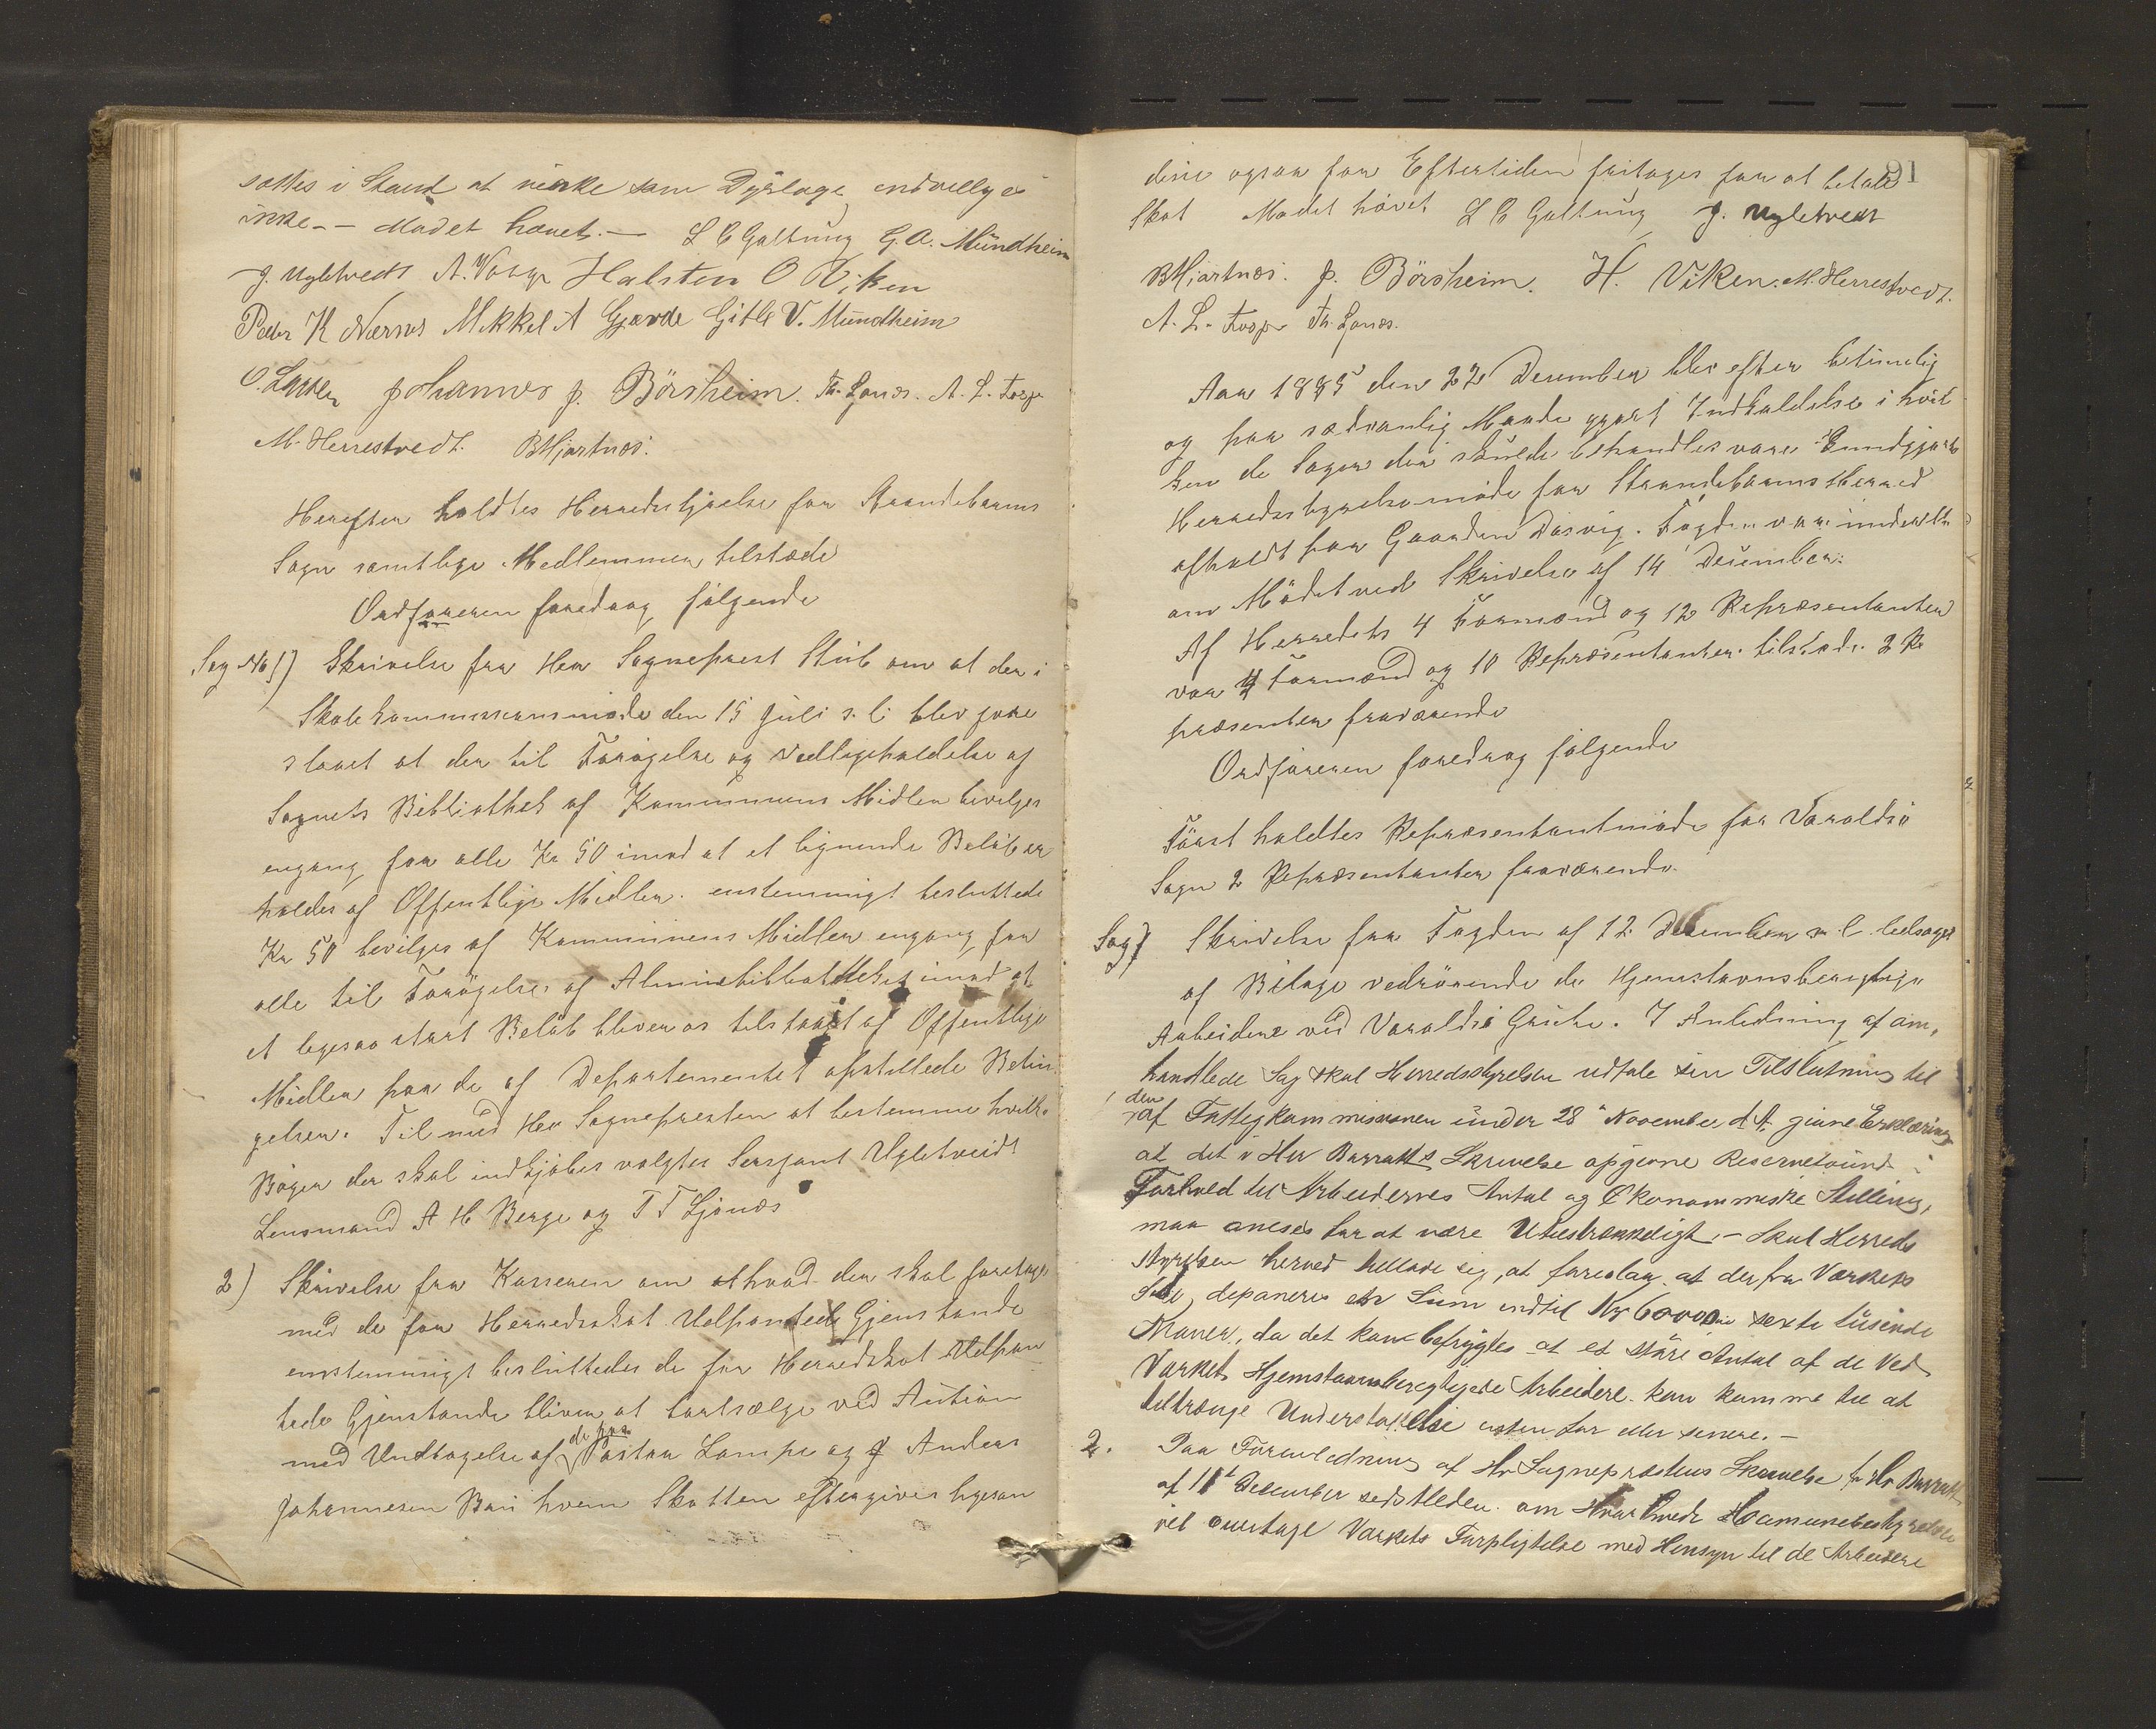 sættes i Stand at virke som Dyrlæge indvilliges
ikke. – Mødet hævet. – L C Galtung G. A. Mundheim
J. Ugletvedt A. Vosge Halsten O Viken
Peder K Nernes Mikkel A Gjerde Gitle V. Mundheim
O. Johannes J. Börsheim. Th. Ljonæs. A. L. Torpe
M. Herrestvedt. B Hjartnæs.
Herefter holdtes Herredsstyrelse for Strandebarms
Sogn samtlige Medlemmer tilstæde
Ordføreren foredrog følgende
Sag No 1) Skrivelse fra Her Sogneprest Stub om at der i
Skolekommissionsmøde den 15 Juli s. l. blev fore
slaaet at der til Forøgelse og Vedligeholdelse af
Sognets Bibliothek af Kommunens Midler bevilges
engang for alle Kr 50 imod at et lignende Beløb er
holdes af Offentlige Midler. enstemmigt besluttede
Kr 50 bevilges af Kommunens Midler engang for
alle til Forøgelse af Almuebibliotheket imod at
et ligesaa stort Beløb bliver os tilstaaet af Offentlige
Midler paa de af Departementet opstillede Betin
gelser. Til med Her Sognepresten at bestemme hvilke
Bøger der skal indkjøbes valgtes Sersjant Ugletveidt
Lensmand A H Berge og T T Ljonæs
2) Skrivelse fra Kasseren om at hvad der skal foretages
med de for Herredsskat Udpantede Gjenstande
enstemmigt besluttedes de for Herredskat Udpan
tede Gjenstande bliver at bortsælge ved Auktion
de fra
med Undtagelse af Lampe og Anders
Johannesen Bru hvem Skatten eftergives ligesom
91
disse ogsaa for Eftertiden fritages for at betale
Skat Mødet hævet L C Galtung J. Ugletvedt
B Hjartnæs. J. Börsheim. H. Viken. M. Herrestvedt.
A. L. Torpe Th. Ljonæs.
Aar 1885 den 22 December blev efter betimelig
og paa sædvanlig Maade gjort Indkaldelse i hvil
ken de Sager der skulde behandles vare Bundgjorte
Herredsstyrelsemøde for Strandebarms Herred
afholdt paa Gaarden Døsvig. Fogden var underrettet
om Mødet ved Skrivelse af 14 December.
Af Herredets 4 Formænd og 12 Repræsentanter
var 4 Formænd og 10 Repræsentanter tilstæde. 2 Re
præsenter fraværende
Ordføreren foredrog følgende
Först holdtes Repræsentantmøde for Varaldsö
Sogn 2 Repræsentanter fraværende.
Sag 1 Skrivelse fra Fogden af 12 December s. l. ledsaget
af Bilage vedrørende de Hjemstavnsberegtige
Arbeidere ved Varaldsö Grube. I Anledning af om,
handlede Sag skal Herredsstyrelsen udtale sin Tilslutning til
den
af Fattigkommissionen under 28 November d. A. givne Erklæring
at det i Her Barratts Skrivelse opgivne Reservefund i
Forhold til Arbeidernes Antal og Økonommiske Stilling,
maa ansees for at være Utilstrækkeligt. – Skal Herreds
styrelsen herved tillade sig, at foreslaa at der fra Værkets
Side deponeres en Sum indtil Kr 60000 sexti tusinde
Kroner, da det kan befrygtes at et större Antal af de Ved
Værket Hjemstavnsberegtigede Arbeidere kan komme til at
tiltrænge Understøttelse enten før eller senere. –
2. Paa Foranledning af Hr Sogneprestens Skrivelse fr Hr Barratt
af 11t December sidstleden. om Strandebarms Komunebestyrelse
vil overtage Værkets Forpligtelse med Hensyn til de Arbeidere